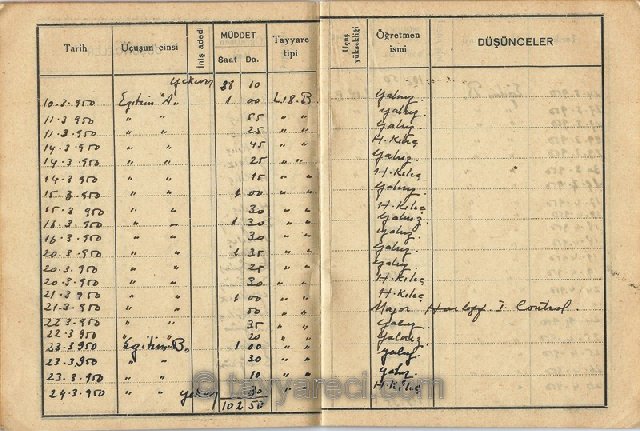 Tarih Uçuşun cinsi İniş aded MÜDDET Saat Da. Tayyare tipi Uçuş yüksekliği Öğretmen ismi DÜŞÜNCELER
Yekun 88 10
10.3.950 Eğitim "A" 1 00 L.18.B.
11.3.950 " " 55 " "
11.3.950 " " 25 " " H.Kılıç
14.3.950 " " 45 " "
14.3.950 " " 25 " " H.Kılıç
14.3.950 " " 15 " "
15.3.950 " " 1 00 " " H.Kılıç
15.3.950 " " 30 " "
16.3.950 " " 1 30 " "
16.3.950 " " 30 " "
20.3.950 " " 1 35 " "
20.3.950 " " 25 " " H.Kılıç
20.3.950 " " 30 " " H.Kılıç
21.3.950 " " 1 00 " "
21.3.950 " " 50 " " Major Control
22.3.950 " " 35 " "
22.3.950 " " 20 " "
23.3.950 Eğitim "B" 1 00 " "
23.3.950 " " 30 " "
23.3.950 " " 10 " "
24.3.950 " " Yekun 30 " H.Kılıç
102 50
© tayyareci.com